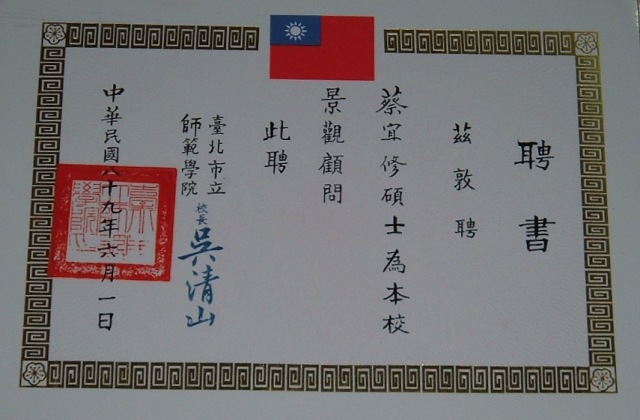 聘書
茲敦聘
蔡宜修碩士為本校
景觀顧問
此聘
臺北市立
師範學院
校長 吳清山
中華民國八十九年六月一日